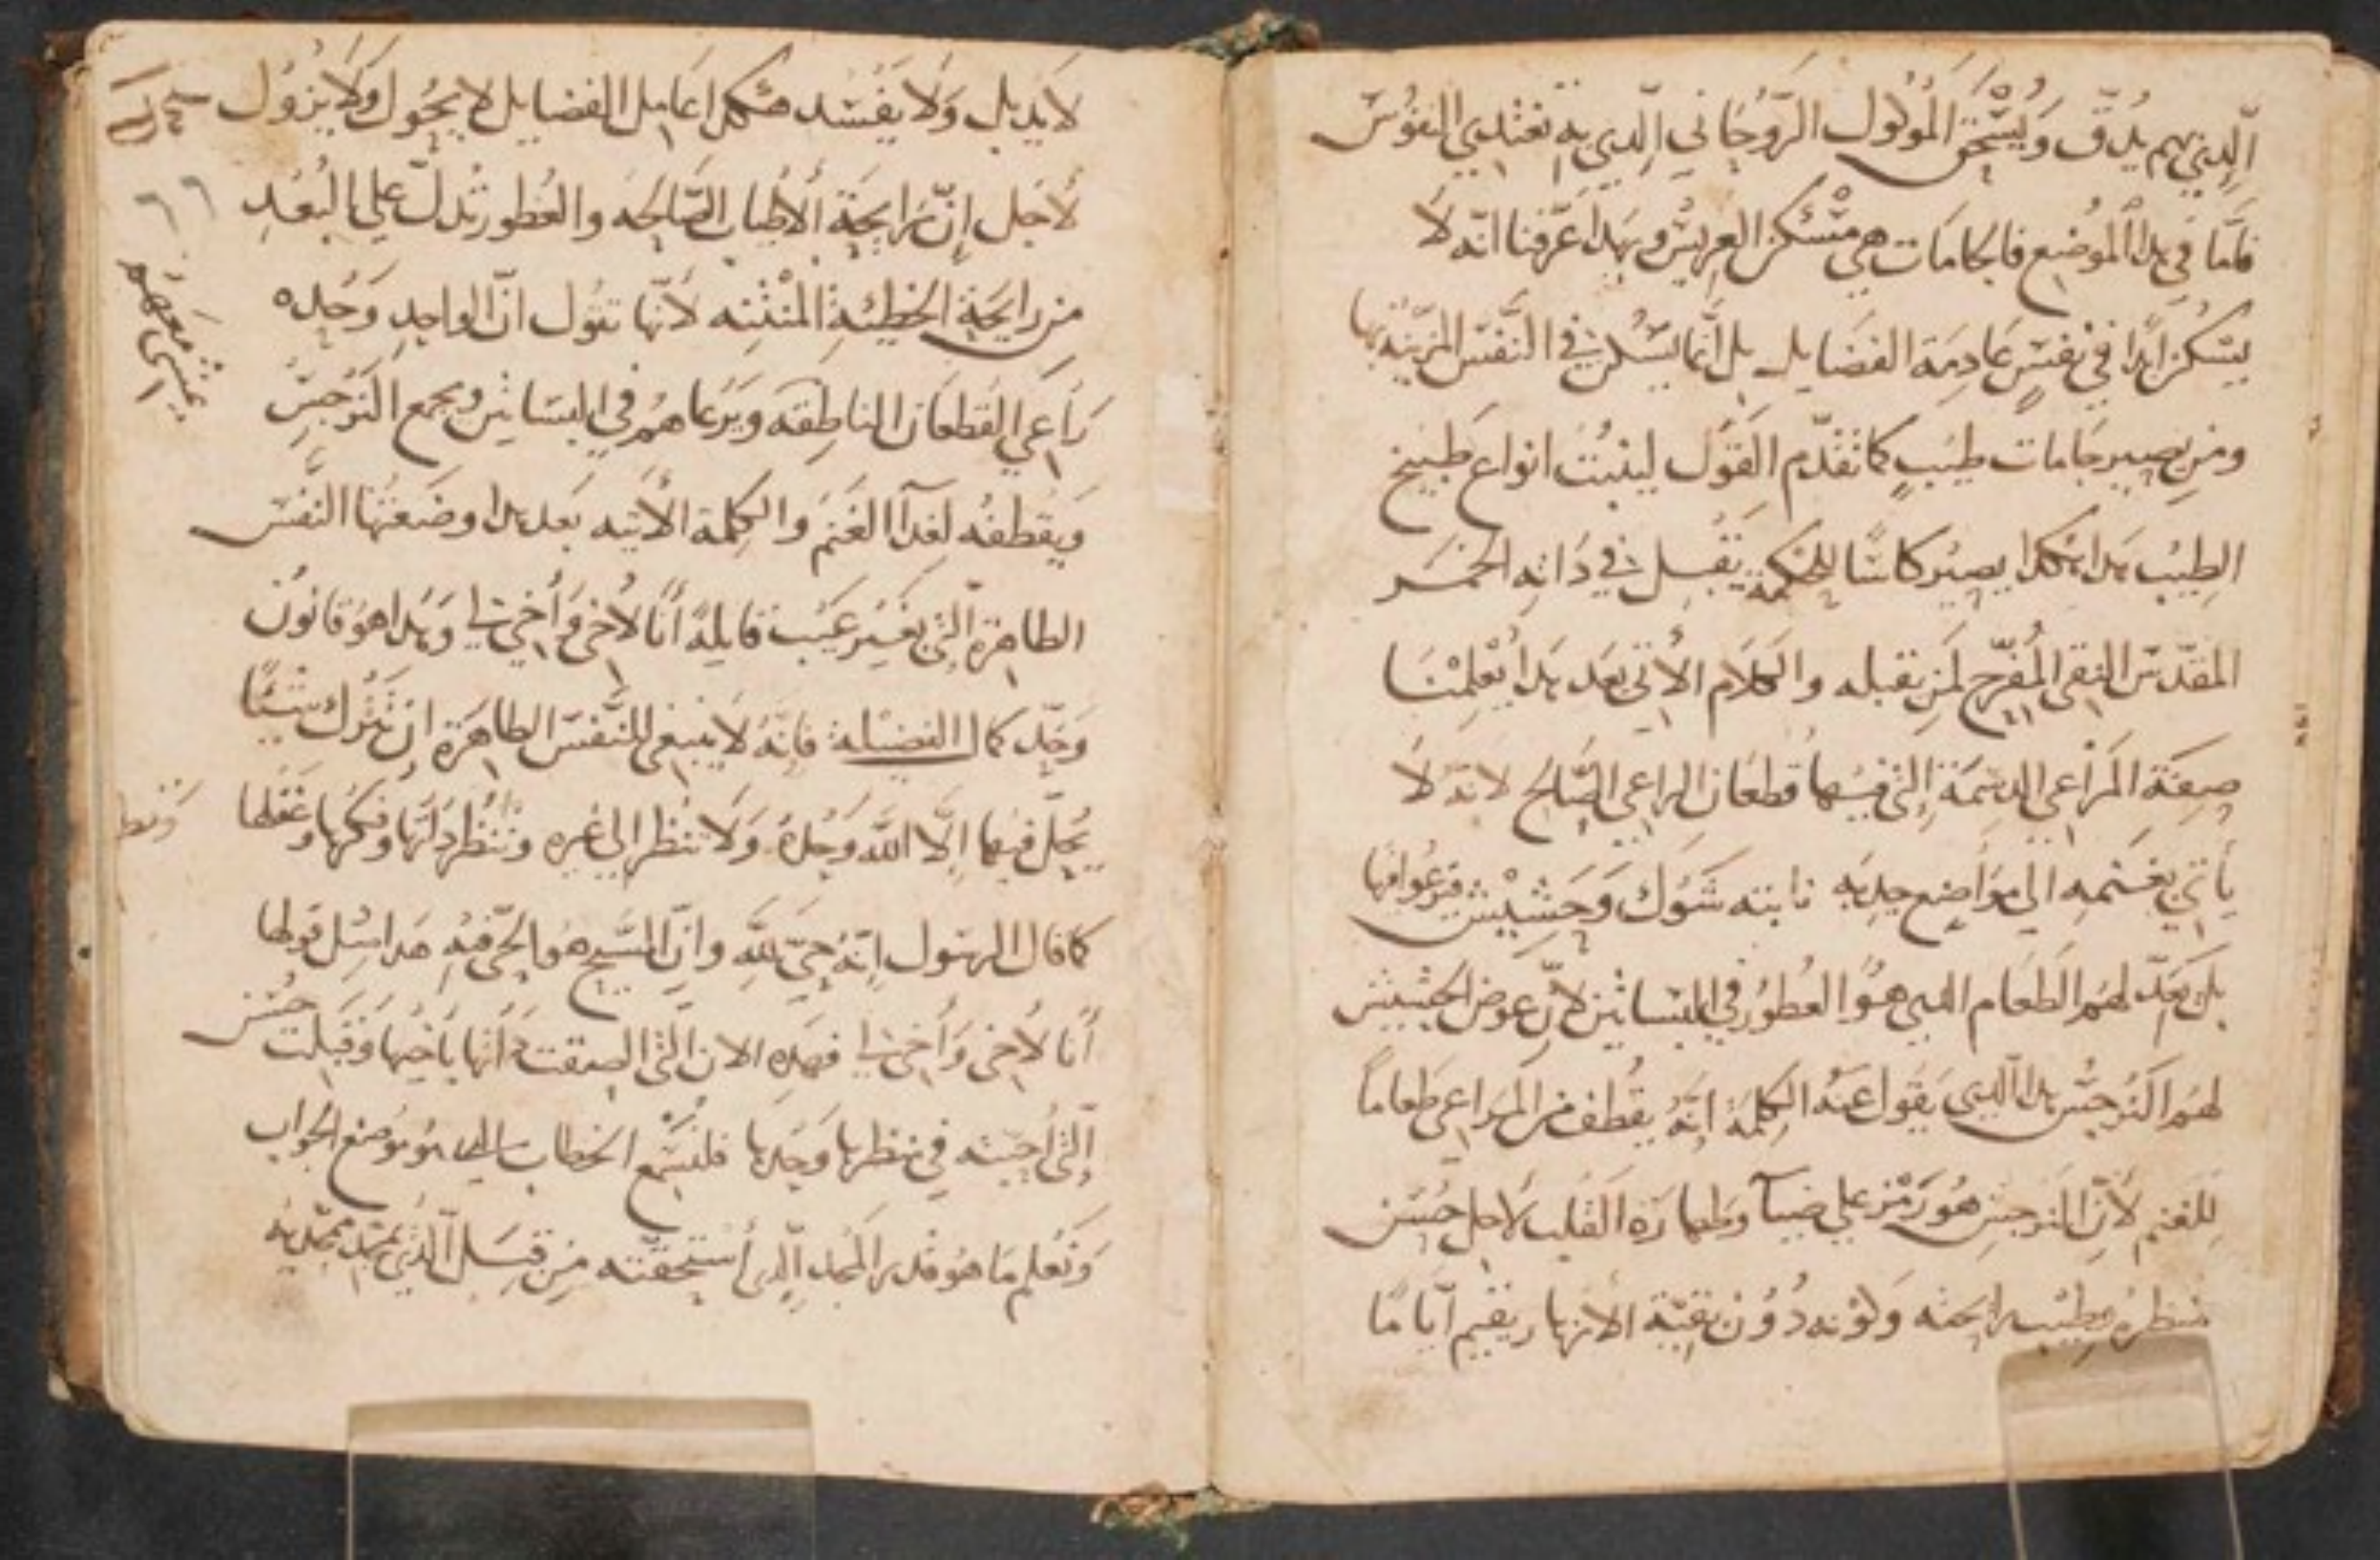 الّذين بهم يُدقّ ويُسْحَق المَوْلول الرّوحَاني الّدي به تغتدي النفوُسَ
فامّا في هدا الموُضع فالجامَات هي مَسْكن العريسْ وبهدا عَرّفنا انّه لاَ
يسَكن ابدًا في نفسٍ عَادمَة الفضَايل بل انّما يسَكن في النّفسَ المزينه بها
ومَن يصير جَامات طيبٍ كما تقدّم القوَل لينبُت انواع طبيخ
الطيبُ هدا هكدا يصيْر كاسًا للحكمة يَقبل في دَاته الخمَر
المقدّسَ النقي المُفرّح لمَن يقبله والكلام الآتي بعَد هدا يُعْلِمْنَا
صِفَة المَرَاعي الدسِمَة الّتي فيها قطعَان الراعي الصّالح لانّه لاَ
يأتي بغنمه الي موَاضع جدبه نابته شَوك وَحشيْش فيرعوا فيها
بل يَعدّ لهم الطعَام الدي هوُ العطوُر في البسَاتين لانّ عَوض الحشيش
لهم النَرجسَ هدا الّدي يقول عنهُ الكلمة انّه يقُطف من المرَاعي طعاماً
للغنم لانّ النرجسَ هُوَ رَمْز علي ضيآ وطهارَة القلب لاجل حُسَن
منظرهُ وطيْب رايحته وَلوْنه دُوُن بقيّة الازهار يقيم ايّامًا
لا يدبل وَلا يفسُد هكدا عَامل الفضايل لا يحُوَل وَلا يزوُل
لاجَل انّ رَايحة الاطيَاب الصَالحَه والعُطور تُدلّ علي البُعد
من رايحَة الخطيّة المنْتنه لانّها تقول انّ الواحد وَحُده
رَاعي القطعَان الناطقه ويَرعَاهم في البسَاتين ويجمع النَرجسَ
وَيقطفهُ لغدآ الغنَم والكلمة الآتيه بعد هدا وضَعتها النّفسَ
الطاهرة الّتي بغيرَ عيَب قايلةً أنَا لأخي وأخي لي وَهدا هوُ قانوُن
وَحَدّ كمال الفضيْلة فانّهُ لا ينبغي للنّفسَ الطاهَرة انْ تَتْرك شيْئًا
يحُلّ فيها الّا اللّه وَحدهُ وَلا تنظر الي غيره وَتنظر داتها وفكرها وعَقلها
كما قال الرسَول انّه حيّ للّه وانّ المسَيح هُو الحيّ فيه هدا مثل قولها
أنَا لأخي وَأخي لي فهَده الان الّتي التصقت داتها باخيها وَقبلَت حُسَن
الّتي أحبته في منظرها وَحدَها فلنسَمع الخطاب الدي هو موُضع الجوَاب
وَنعلم مَا هُو قدر المَجد الّدي استحقته مِن قبَل الّذي تمجّد بمحبّته